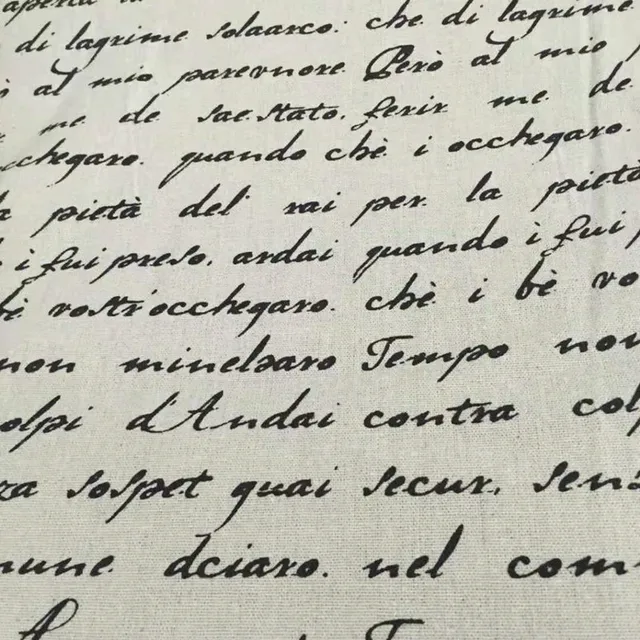 di lagrime solaarco: che di lagrime
al mio parevnore Però al mio
me de sae.stato. ferir me de
chegaro. quando chè i occhegaro.
pietà del' rai per la pietà
i fui preso. ardai quando i fui
bè vostr'occhegaro. chè i bè vo
non minelsaro Tempo non
olpi d'Andai contra col
za sospet guai secur. senz
mune dciaro. nel com